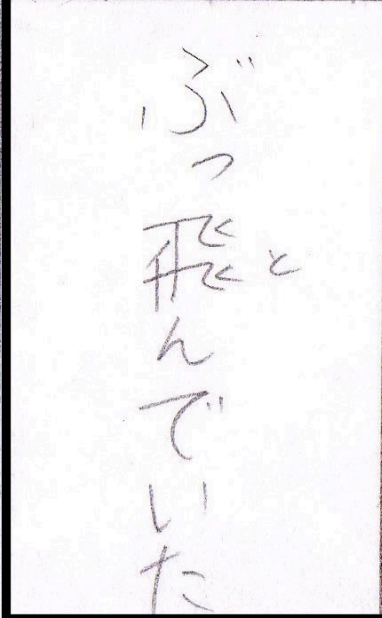 ぶっ飛んでいた
と